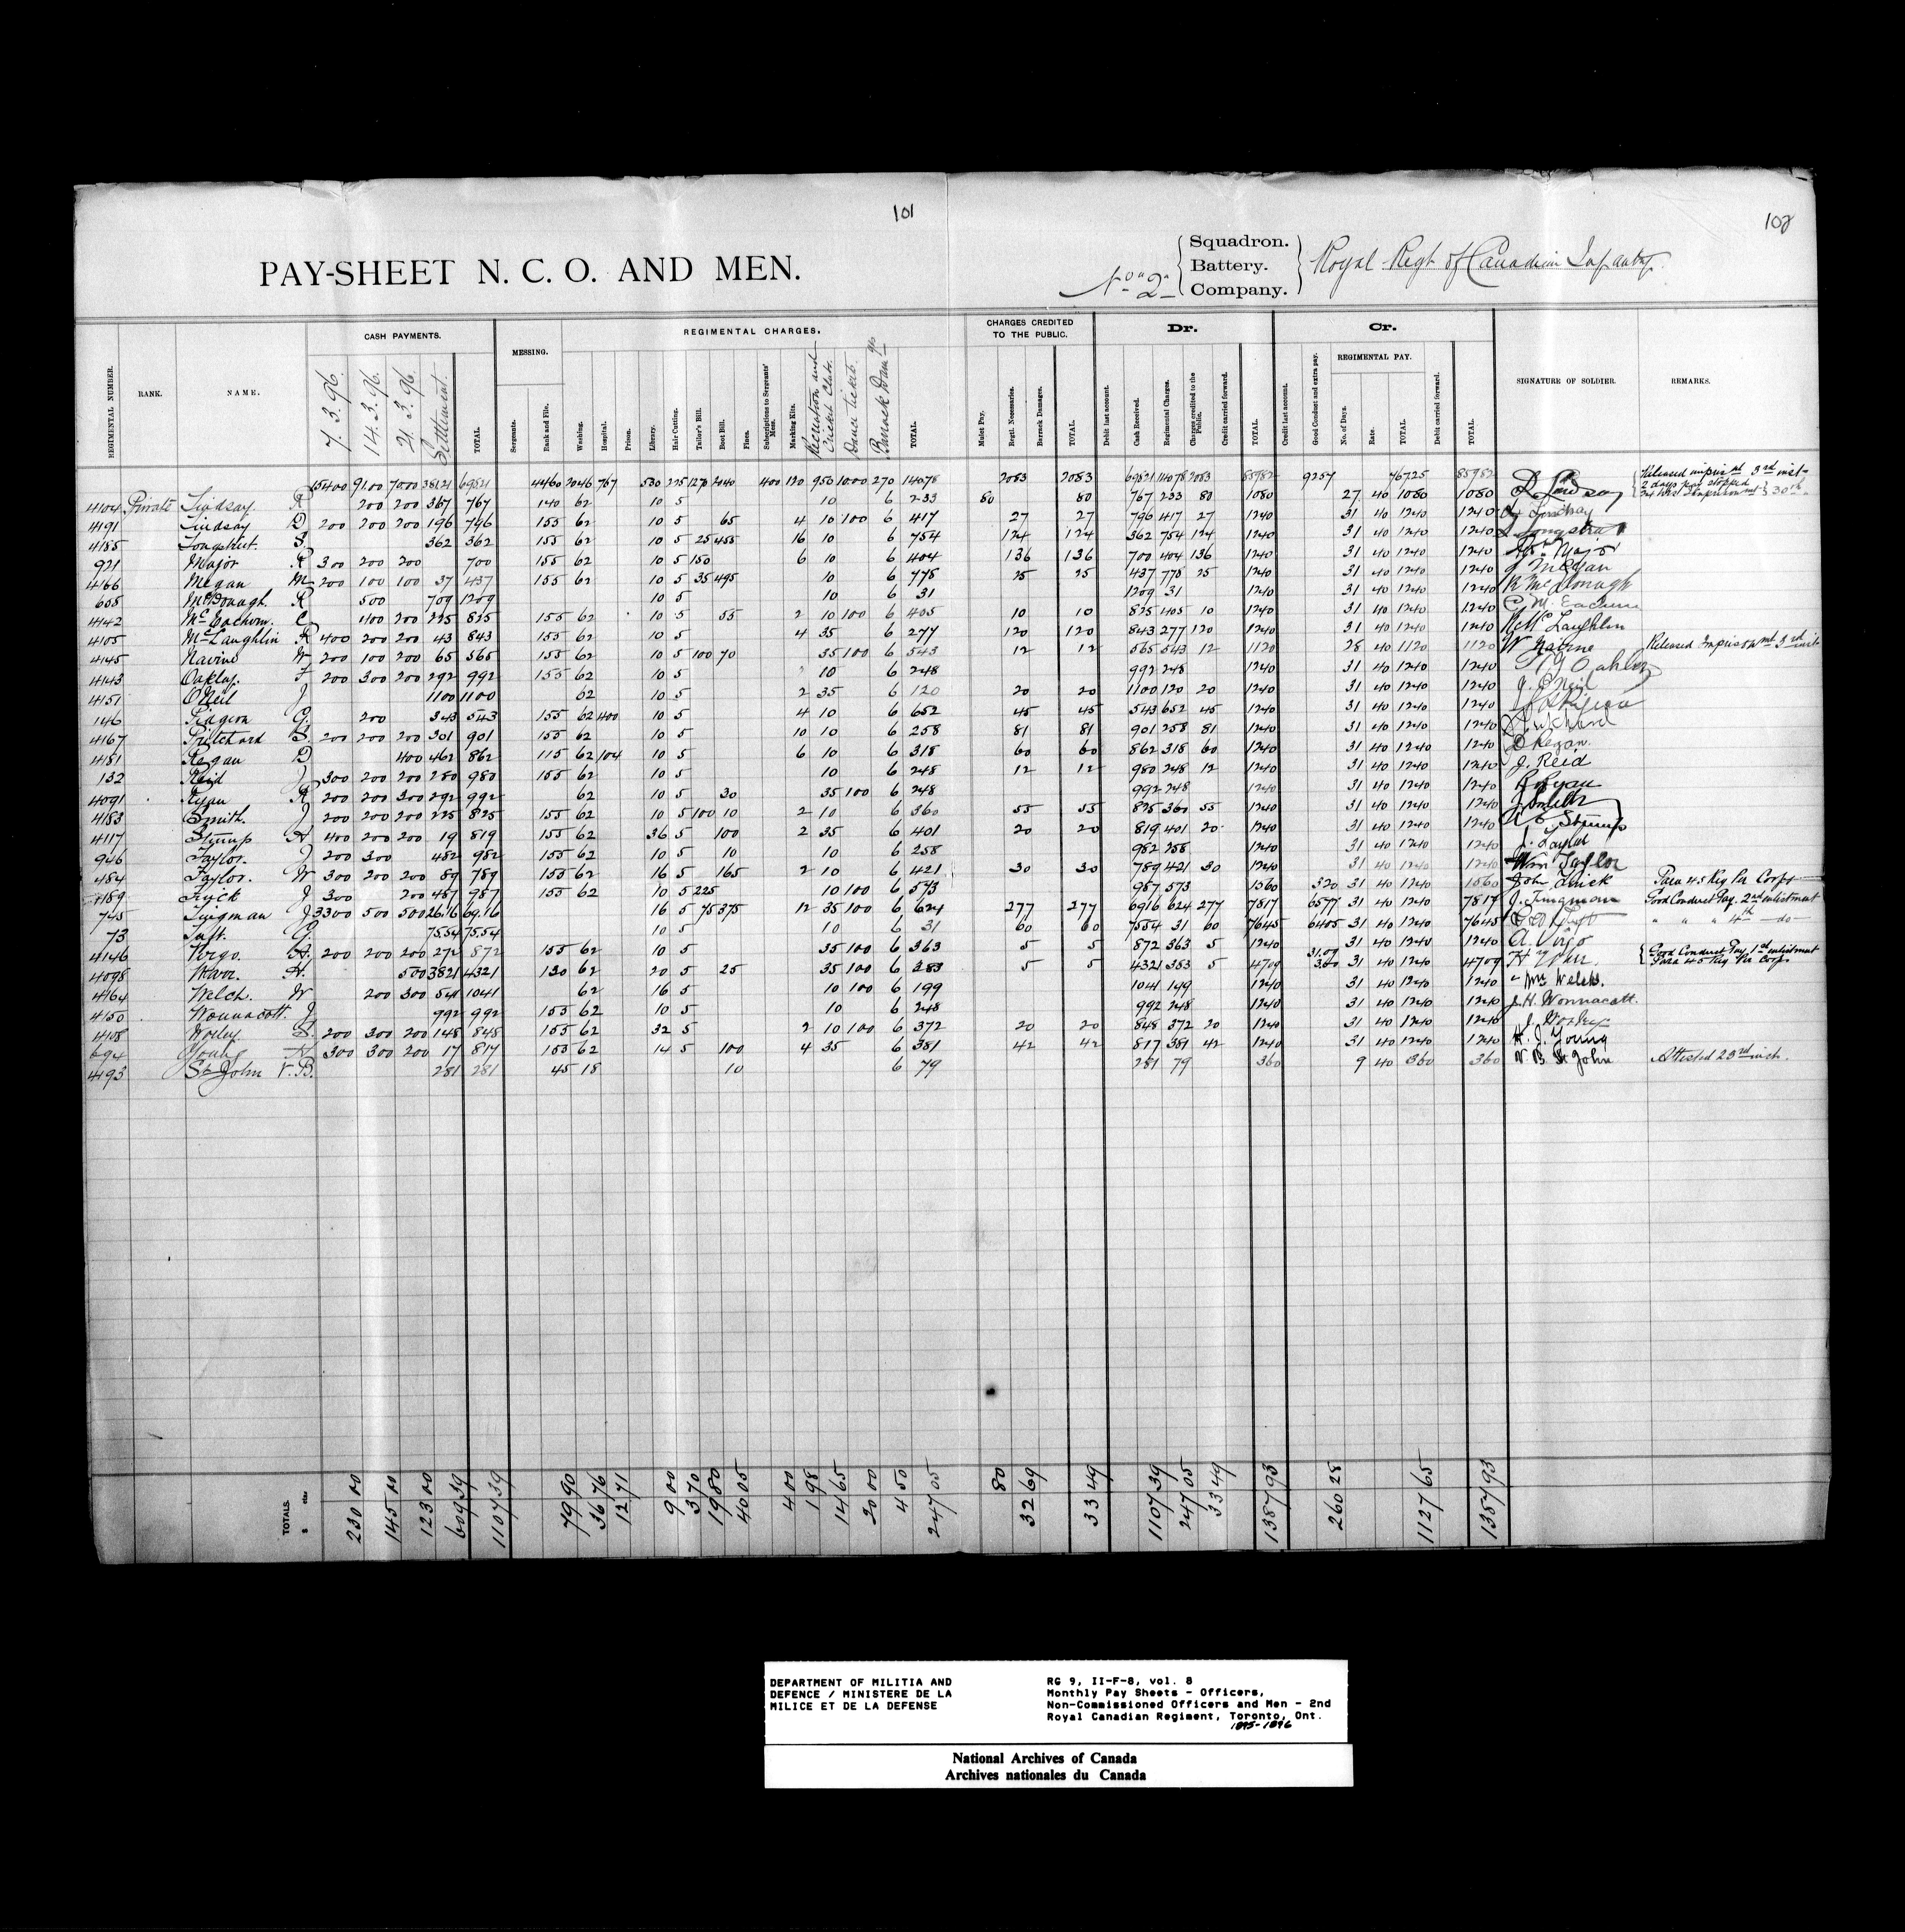 101
102
PAY-SHEET N. C. O. AND MEN.
No. 2 { Squadron. Battery. Company. } Royal Regt of Canadian Infantry
REGIMENTAL NUMBER. RANK. NAME. CASH PAYMENTS. MESSING. REGIMENTAL CHARGES. CHARGES CREDITED TO THE PUBLIC. Dr. Cr. REGIMENTAL PAY. SIGNATURE OF SOLDIER. REMARKS.
7.3.96. 14.3.96. 21.3.96. Settlement. TOTAL. Sergeants. Rank and File. Washing. Hospital. Prison. Library. Hair Cutting. Tailor's Bill. Boot Bill. Fines. Subscriptions to Sergeants' Mess. Marking Kits. Recreation and Cricket Club. Dance Tickets. Barrack Dam TOTAL. Mulct Pay. Regtl. Necessaries. Barrack Damages. TOTAL. Debit last account. Cash Received. Regimental Charges. Charges credited to the Public. Credit carried forward. TOTAL. Credit last account. Good Conduct and extra pay. No. of Days. Rate. TOTAL Debit carried forward. TOTAL.
15400 9100 7000 38121 69621 4460 2046 767 530 225 1270 2040 400 120 950 1000 270 14078 2083 2083 69821 14078 2083 85982 9257 76725 85982
4104 Private Lindsay R 200 200 367 767 140 62 10 5 10 6 233 80 80 767 233 80 1080 27 40 1080 1080 R Lindsay Released imprisnt 3rd inst 2 days pay stopped 24 hrs Imprisonmt } 30th
4191 Lindsay D 200 200 200 196 796 155 62 10 5 65 4 10 100 6 417 27 27 796 417 27 1240 31 40 1240 1240 Lindsay
4185 Longstreet. S. 362 362 155 62 10 5 25 455 16 10 6 754 124 124 362 754 124 1240 31 40 1240 1240 Longstreet
921 Major R 300 200 200 700 155 62 10 5 150 6 10 6 404 136 136 700 404 136 1240 31 40 1240 1240 Major
4166 Megan M 200 100 100 37 437 155 62 10 5 35 495 10 6 778 25 25 437 778 25 1240 31 40 1240 1240 Megan
605 McDonagh. R 500 709 1209 10 5 10 6 31 1209 31 1240 31 40 1240 1240 R McDonagh
4142 McEachern. C. 100 200 225 825 155 62 10 5 55 2 10 100 6 405 10 10 825 405 10 1240 31 40 1240 1240 C. McEachern
4105 McLaughlin R 400 200 200 43 843 155 62 10 5 4 35 6 277 120 120 843 277 120 1240 31 40 1240 1240 R McLaughlin
4145 Navine W 200 100 200 65 565 155 62 10 5 100 70 35 100 6 543 12 12 565 543 12 1120 28 40 1120 1120 W Nairne Released Imprisonmt 3rd inst
4143 Oakley. F 200 300 200 292 992 155 62 10 5 10 6 248 992 248 1240 31 40 1240 1240 Oakley
4151 ONeil J 1100 1100 62 10 5 2 35 6 120 20 20 1100 120 20 1240 31 40 1240 1240 J. ONeil
146 Pidgeon G. 200 343 543 155 62 400 10 5 4 10 6 652 45 45 543 652 45 1240 31 40 1240 1240
4167 Pritchard S. 200 200 200 301 901 155 62 10 5 10 10 6 258 81 81 901 258 81 1240 31 40 1240 1240 Pritchard
4181 Regan D 400 462 862 115 62 104 10 5 6 10 6 318 60 60 862 318 60 1240 31 40 1240 1240 D Regan.
132 Reid J 300 200 200 280 980 155 62 10 5 10 6 248 12 12 980 248 12 1240 31 40 1240 1240 J. Reid
4091 Ryan R 200 200 300 292 992 62 10 5 30 35 100 6 248 992 248 1240 31 40 1240 1240 R Ryan
4183 Smith. J 200 200 200 225 825 155 62 10 5 100 10 2 10 6 360 55 55 825 360 55 1240 31 40 1240 1240 J Smith
4117 Stirrup A 400 200 200 19 819 155 62 36 5 100 2 35 6 401 20 20 819 401 20 1240 31 40 1240 1240 Stirrup
946 Taylor. J 200 300 482 982 155 62 10 5 10 10 6 258 982 258 1240 31 40 1240 1240 J. Taylor
484 Taylor. W 300 200 200 89 789 155 62 16 5 165 2 10 6 421 30 30 789 421 30 1240 31 40 1240 1240 Wm Taylor
4189 Trick J 300 200 487 987 155 62 10 5 225 10 100 6 573 987 573 1560 320 31 40 1240 1560 John Trick Para 45 Reg Per Corps
745 Tingman J 3300 500 500 2616 6916 16 5 75 375 12 35 100 6 624 277 277 6916 624 277 7817 6577 31 40 1240 7817 J. Tungman Good Conduct Pay. 2nd enlistment
73 Tuft. G. 7554 7554 10 5 10 6 31 60 60 7554 31 60 7645 6405 31 40 1240 7645 " " " 4th do
4146 Virgo. A. 200 200 200 272 872 155 62 10 5 35 100 6 363 5 5 872 363 5 1240 31 40 1240 1240 A. Virgo
4098 H. 500 3821 4321 130 62 20 5 25 35 100 6 383 5 5 4321 383 5 4709 3109 360 31 40 1240 4709 Good Conduct Pay 1st enlistment Para 45 Reg Per Corps
4164 Welch. W 200 300 541 1041 62 16 5 10 100 6 199 1041 199 1240 31 40 1240 1240 Wm Welch.
4150 Wonnacott. J 992 992 155 62 10 5 10 6 248 992 248 1240 31 40 1240 1240 J. H. Wonnacott.
4108 Worley S. 200 300 200 148 848 155 62 32 5 2 10 100 6 372 20 20 848 372 20 1240 31 40 1240 1240 Worley
694 Young H 300 300 200 17 817 155 62 14 5 100 4 35 6 381 42 42 817 381 42 1240 31 40 1240 1240 H. J. Young
4193 St. John V.B. 281 281 45 18 10 6 79 281 79 360 9 40 360 360 V B St John Attested 23rd inst.
TOTALS. $ cts 230 00 145 00 123 00 609 39 1107 39 79 90 36 76 12 71 9 00 3 70 19 80 40 05 4 00 1 98 14 65 20 00 4 50 247 05 80 32 69 33 49 1107 39 247 05 33 49 1387 93 260 28 1127 65 1387 93
DEPARTMENT OF MILITIA AND
DEFENCE / MINISTERE DE LA
MILICE ET DE LA DEFENSE
RG 9, II-F-8, vol. 8
Monthly Pay Sheets - Officers,
Non-Commissioned Officers and Men - 2nd
Royal Canadian Regiment, Toronto, Ont.
1895-1896
National Archives of Canada
Archives nationales du Canada